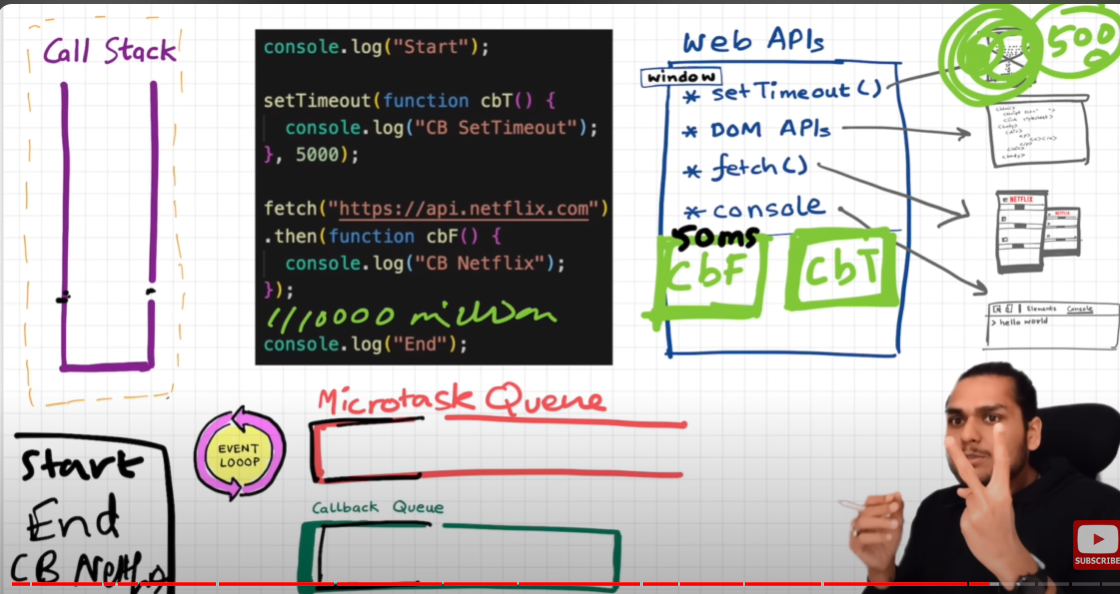 Call Stack
console.log("Start");
setTimeout(function cbT() {
console.log("CB SetTimeout");
}, 5000);
fetch("https://api.netflix.com")
.then(function cbF() {
console.log("CB Netflix");
});
console.log("End");
Web APIs
window
* setTimeout()
* DOM APIs
* fetch()
* console
50ms
CbF
CbT
500
NETFLIX
Elements Console
> hello world
Microtask Queue
EVENT
LOOOP
Callback Queue
Start
End
CB
SUBSCRIBE